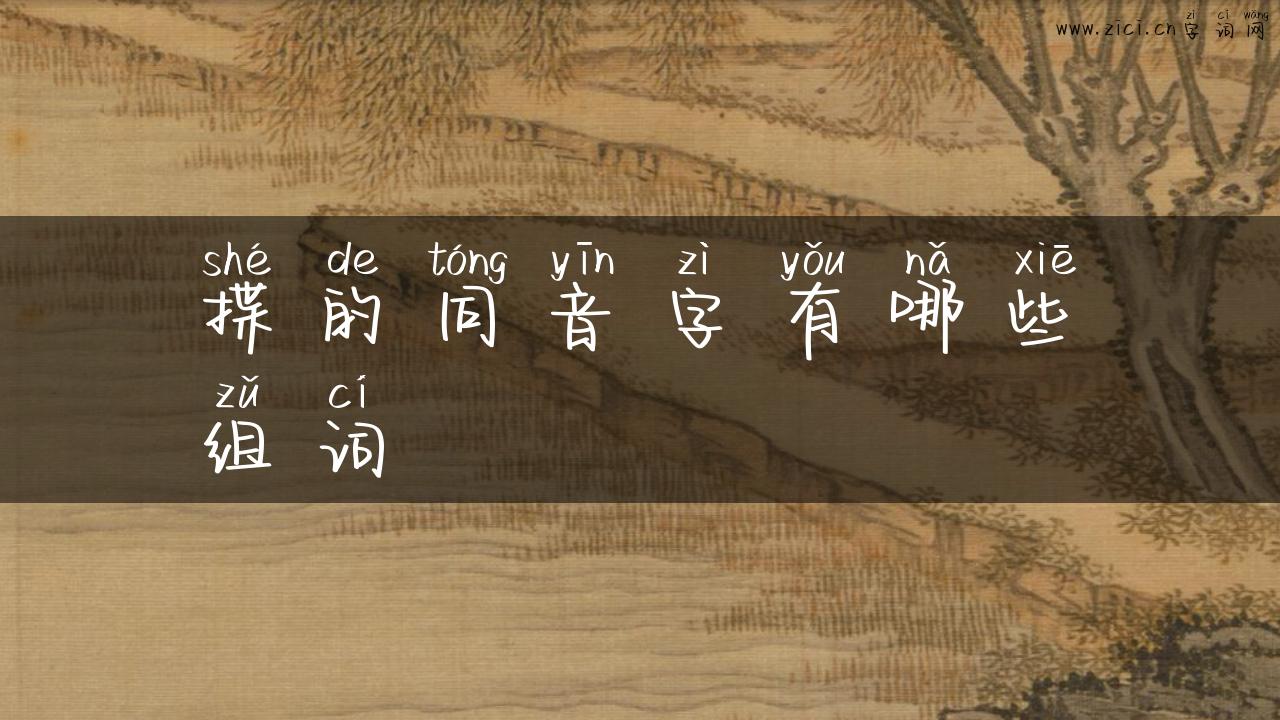 www.zici.cn
zì cí wǎng
字词网
shé de tóng yīn zì yǒu nǎ xiē
揲的同音字有哪些
zǔ cí
组词